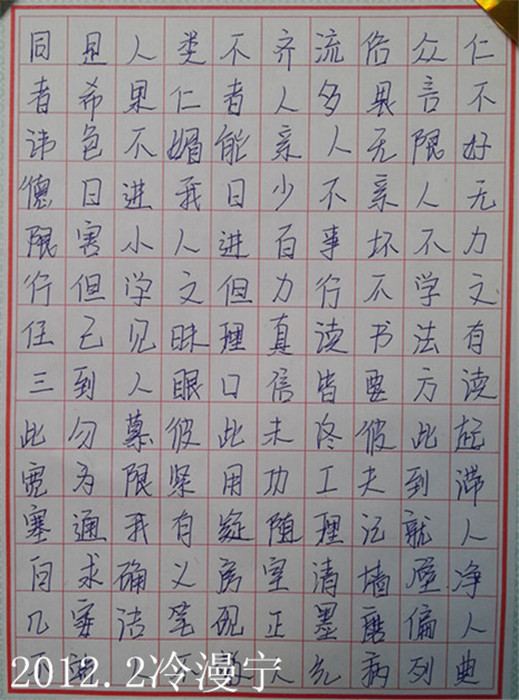 同是人类不齐流俗众仁
者希果仁者人多畏言不
讳色不媚能亲人无限好
德日进我日少不亲人无
限害小人进百事坏不力
行但学文但力行不学文
任己见昧理真读书法有
三到人眼口信皆要方读
此勿慕彼此未终彼此起
宽为限紧用功工夫到滞
塞通我有疑随理记就人
问求确义房室清墙壁净
几案洁笔砚正墨磨偏人
不人先病列典
2012.2冷漫宁